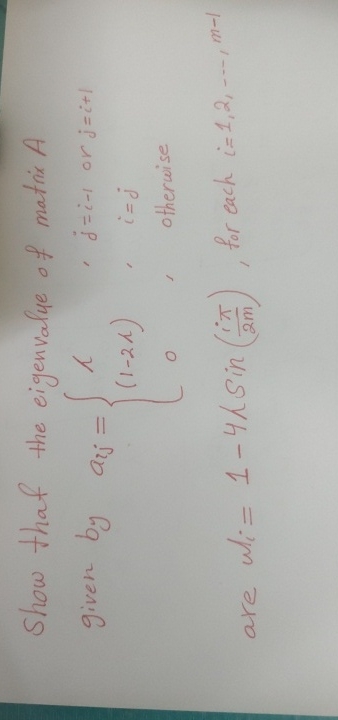 Show that the eigenvalue of matrix A
given by aij = { λ , j=i-1 or j=i+1
(1-2λ) , i=j
0 , otherwise
are μi = 1-4λ sin (iπ/2m) , for each i=1,2,---,m-1